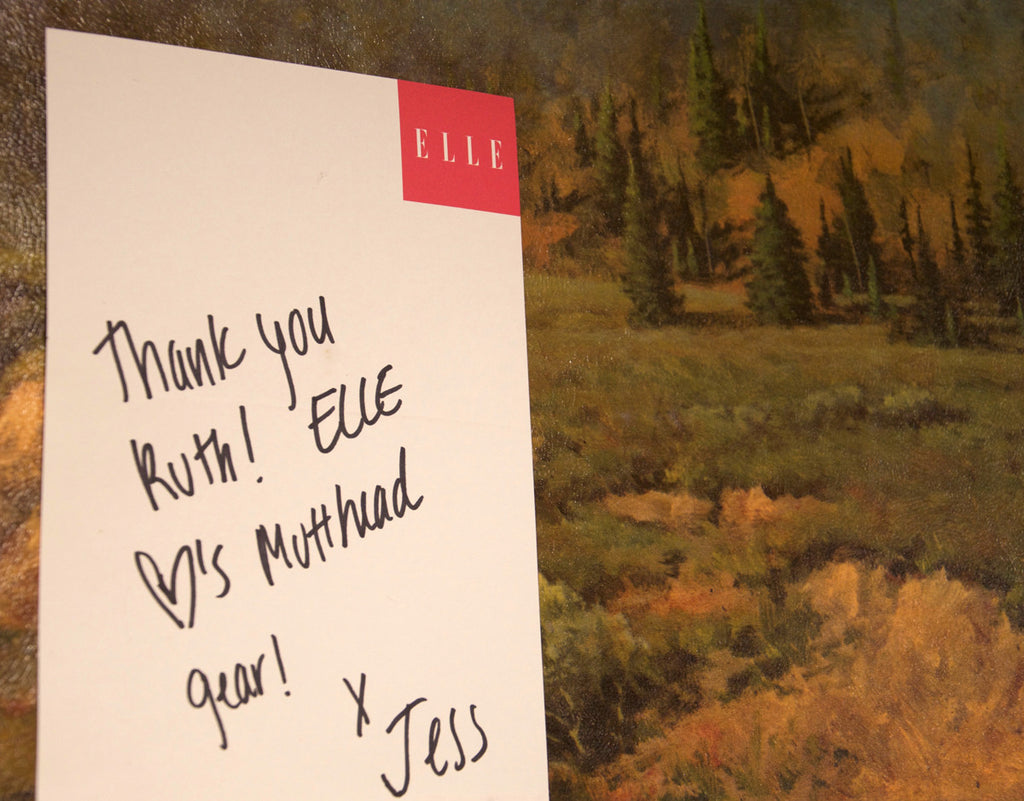 ELLE
Thank you
Ruth! ELLE
♡'s Mutthead
gear!
x
Jess